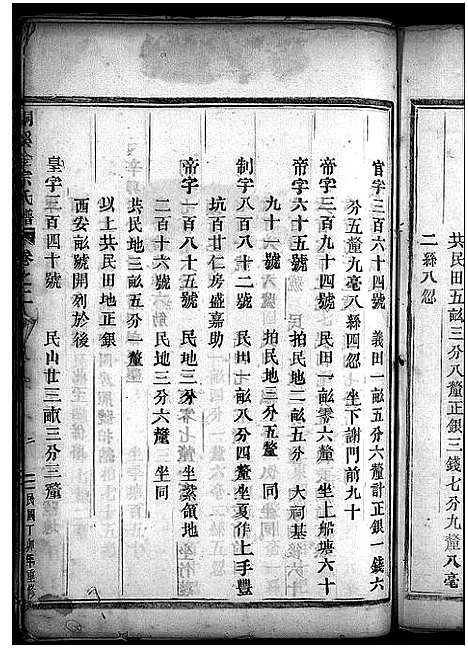 共民田五畝三分八釐正銀三錢七分九釐八毫
二絲八忽
官字三百六十四號 義田一畝五分六釐計正銀一錢六
分五釐九毫八絲四忽 坐下謝門前九十
帝字三百九十四號 民田一畝零六釐 坐上船塘六十
帝字六十五號 拍民地二畝五分 大祠基後六十
九十一號 拍民地三分五釐 同
制字八百八十二號 民田七畝八分四釐坐夏伴上手豐
坑百廿仁房盛嘉助
帝字一百八十五號 民地三分零七釐 坐紫領地
二百十六號 民地三分六釐 坐同
共民地三畝五分一釐
以上共民田地正銀
西安畝號開列於後
皇字三百四十號 民山廿三畝三分三釐
氏譜
卷之二
民國丁卯年重修